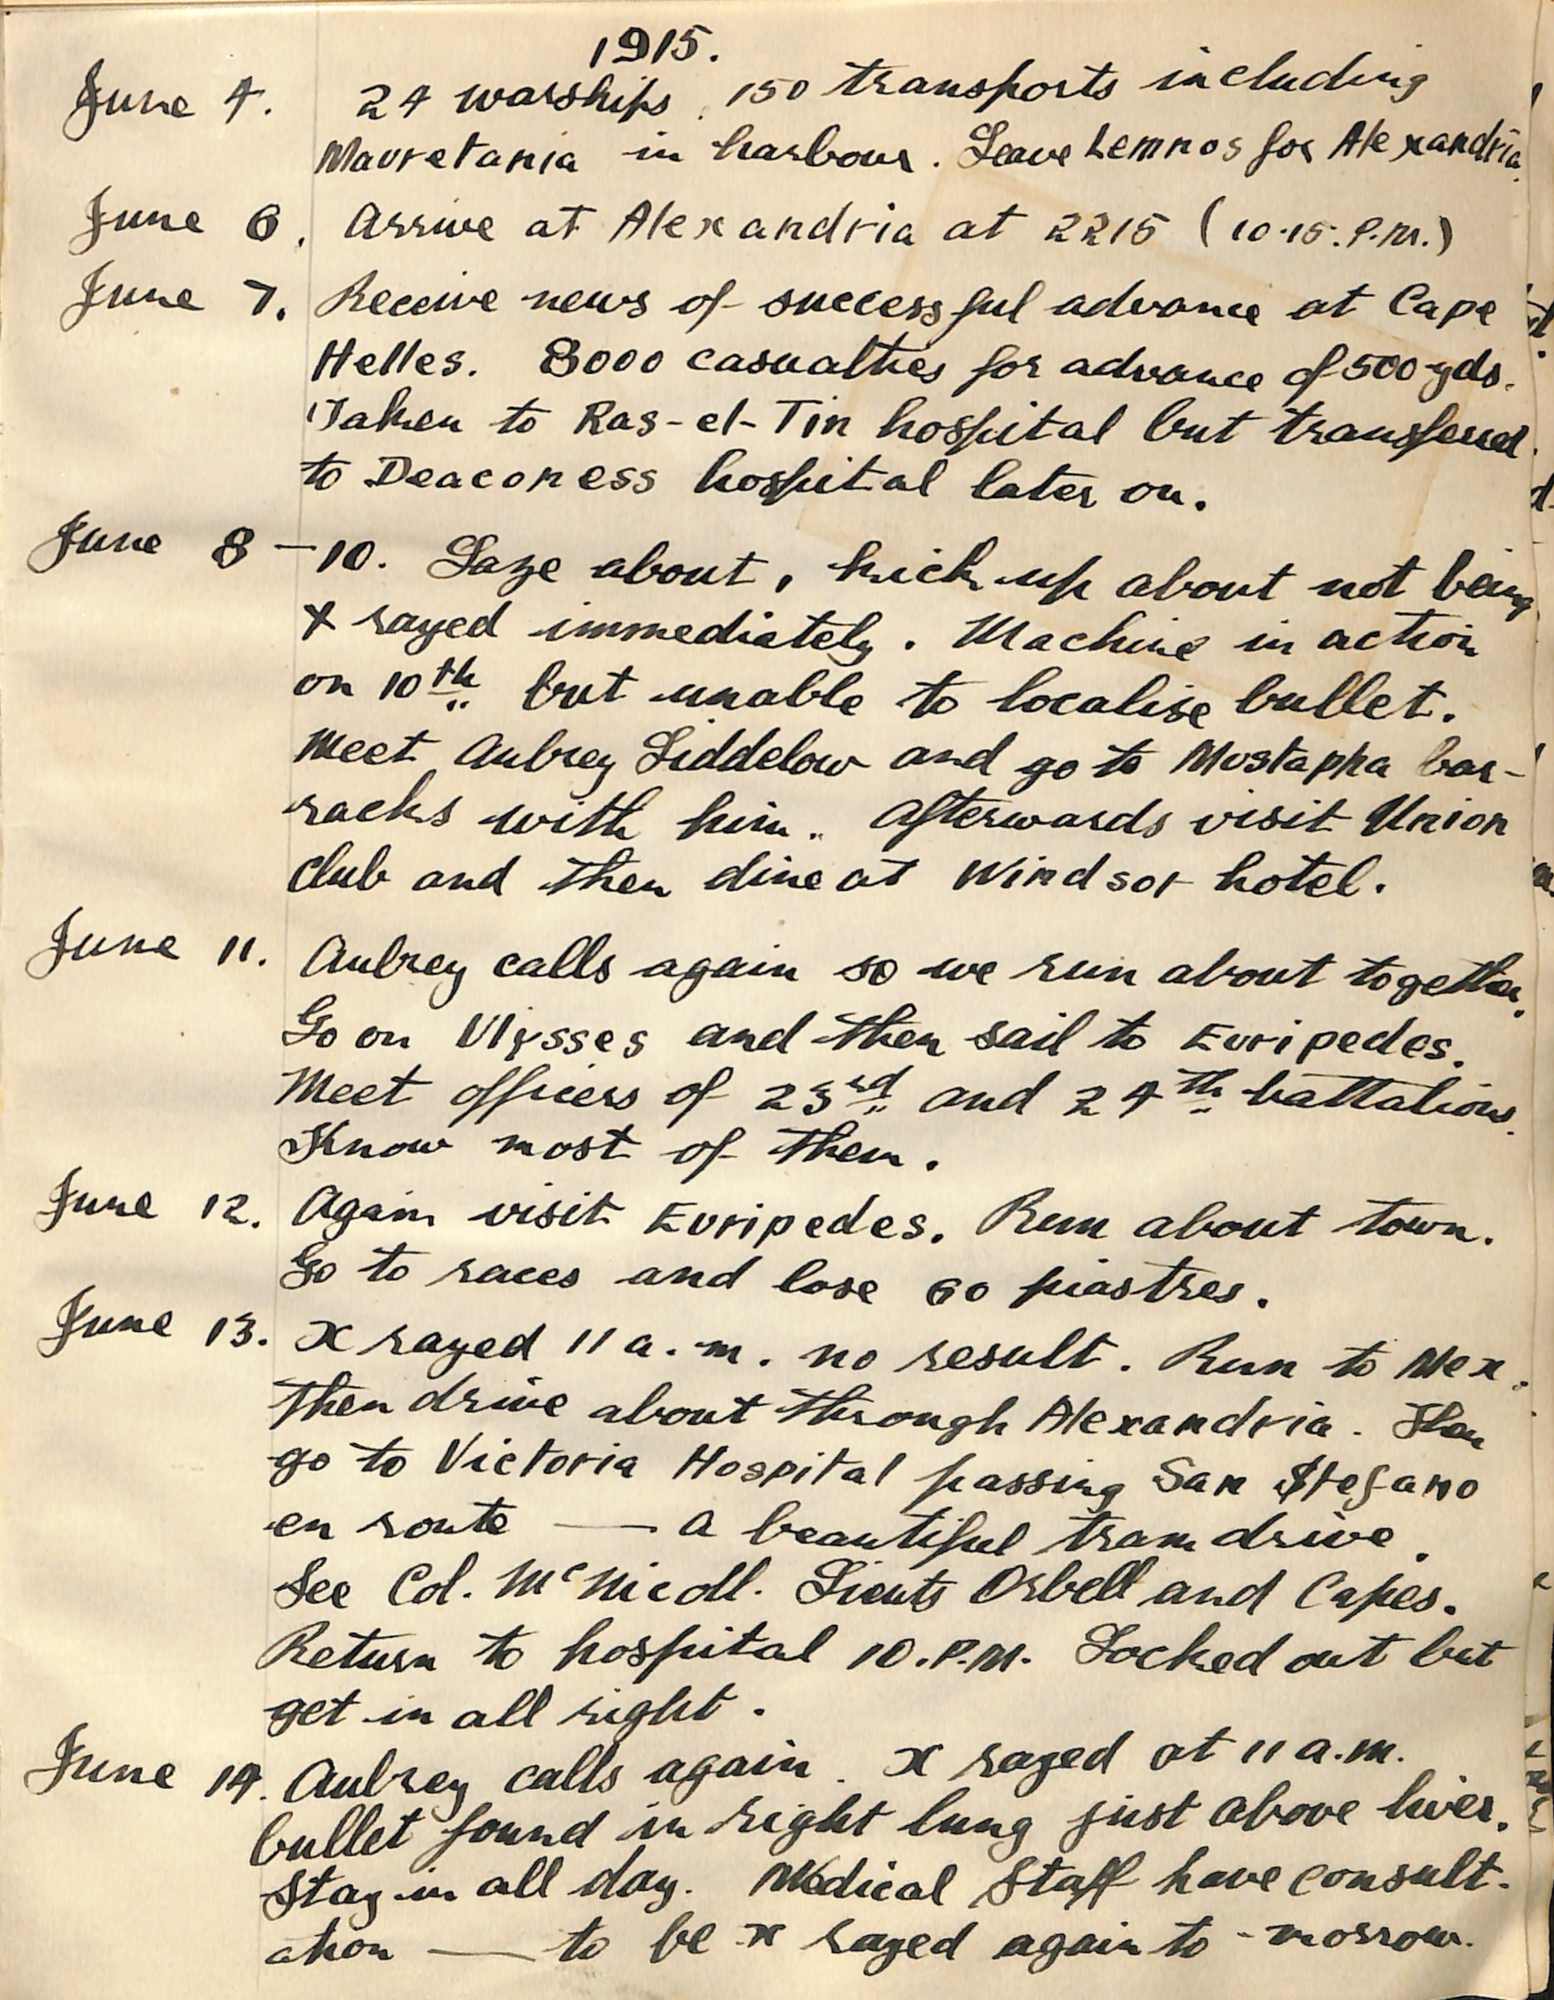 1915.
June 4. 24 warships, 150 transports including
Mauretania in harbour. Leave Lemnos for Alexandria.
June 6. Arrive at Alexandria at 2215 (10.15. P.M.)
June 7. Receive news of successful advance at Cape
Helles. 8000 casualties for advance of 500 yds.
Taken to Ras-el-Tin hospital but transferred
to Deaconess hospital later on.
June 8 - 10. Laze about, kick up about not being
X rayed immediately. Machine in action
on 10th but unable to localise bullet.
Meet Aubrey Liddelow and go to Mustapha bar-
racks with him. Afterwards visit Union
Club and then dine at Windsor hotel.
June 11. Aubrey calls again so we run about together.
Go on Ulysses and then sail to Euripedes.
Meet officers of 23rd and 24th battalions.
Know most of them.
June 12. Again visit Euripedes. Run about town.
Go to races and lose 60 piastres.
June 13. X rayed 11 a.m. no result. Run to Mex.
Then drive about through Alexandria. Then
go to Victoria Hospital passing San Stefano
en route — a beautiful tram drive.
See Col. McNicoll. Lieuts Orbell and Capes.
Return to hospital 10.P.M. Locked out but
get in all right.
June 14. Aubrey calls again. X rayed at 11 a.m.
bullet found in right lung just above liver.
Stay in all day. Medical Staff have consult-
ation — to be x rayed again to-morrow.